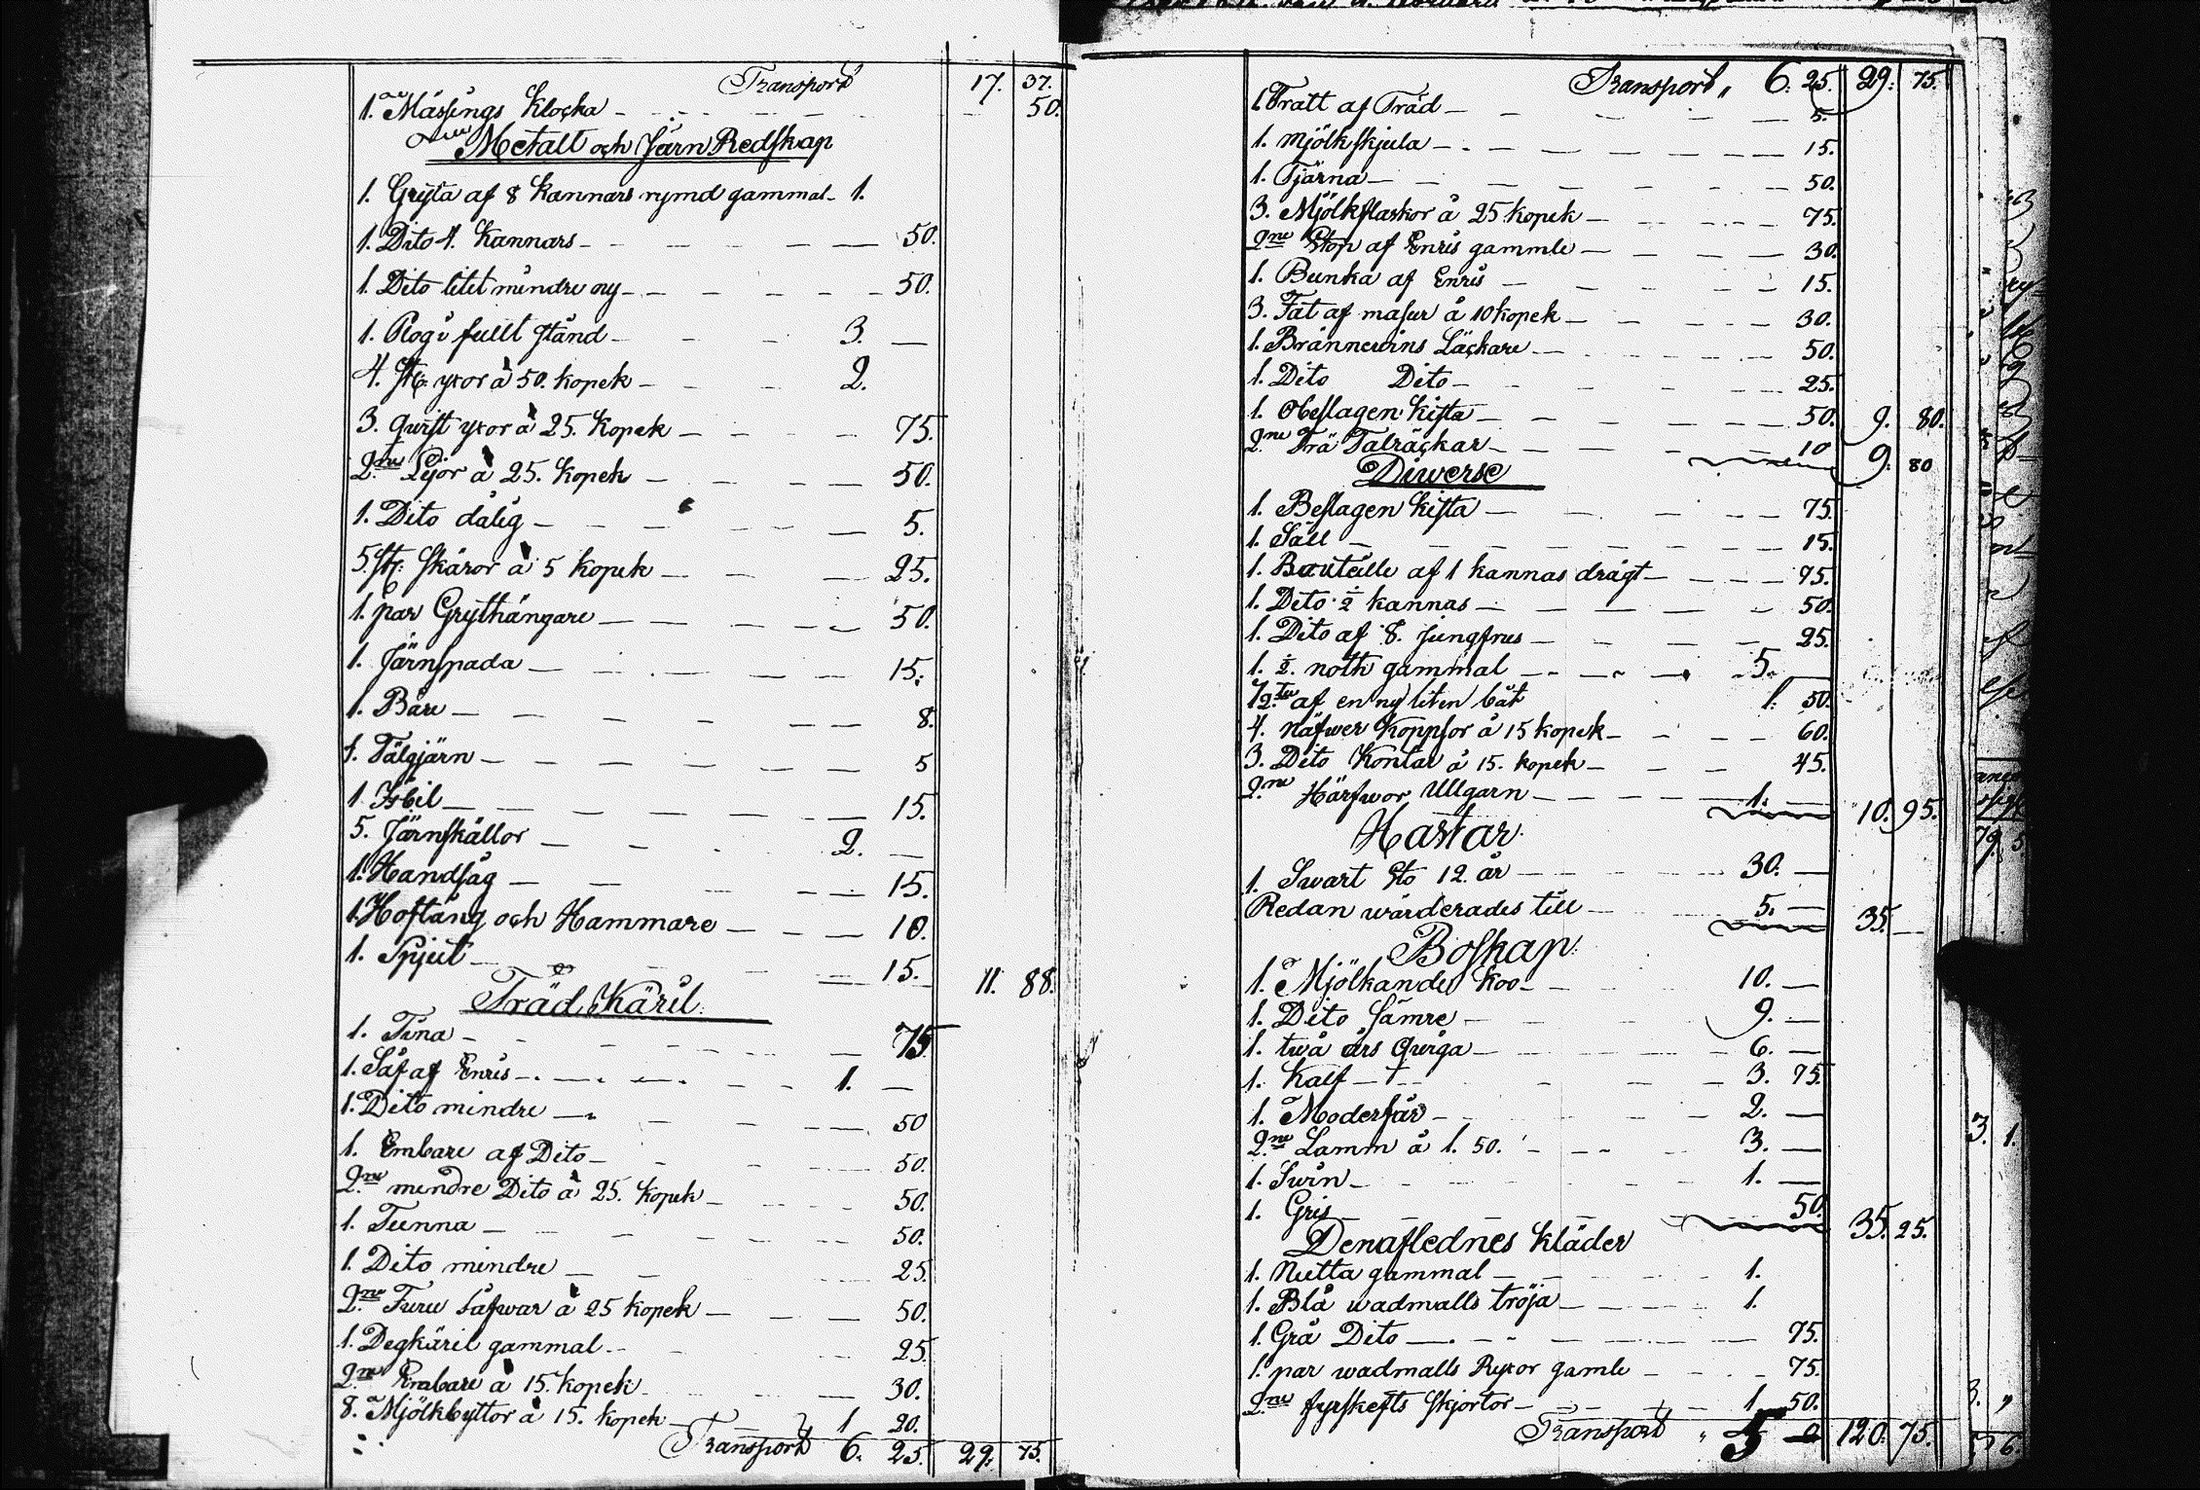 Transport 17. 37.
1. Mässings Klocka 50.
Metall och Järn Redskap
1. Gryta af 8 Kannars rymd gammal 1.
1. Dito 4. Kannars 50.
1. Dito litet mindre ny 50.
1. Plog i fullt stånd 3. —
4. st. yxor à 50. kopek 2.
3. quist yxor à 25. Kopek 75.
2ne Lijor à 25. Kopek 50.
1. Dito dålig 5.
5. st. skäror à 5 kopek 25.
1. par Grythängare 50.
1. Järnspada 15.
1. Båre 8.
1. Tälgjärn 5
1 Isbil 15.
5. Järnskällor 2. —
1. Handsåg 15.
1. Hoftång och Hammare 10.
1. Spjut 15. 11. 88.
Träd Käril.
1. Tina 75
1. Såf af Enris 1. —
1. Dito mindre 50
1. Embare af Dito 50.
2ne mindre Dito à 25. kopek 50.
1. Tunna 50.
1. Dito mindre 25.
2ne Furu Såfwar à 25 kopek 50.
1. Degkäril gammal 25.
2ne Embare à 15. kopek 30.
8. Mjölkbyttor à 15. kopek 1 20.
Transport 6. 25. 29. 75.
Transport 6. 25. 29. 75.
1. Tratt af Träd 5.
1. Mjölkskjula 15.
1. Tjärna 50.
3. Mjölkflaskor à 25 kopek 75.
2ne Stop af Enris gammle 30.
1. Bunka af Enris 15.
3. Fat af masur à 10 kopek 30.
1. Brännewins Läckare 50.
1. Dito Dito 25.
1. Obeslagen kista 50. 9. 80.
2ne Trä Talräckar 10 9. 80
Diwerse
1. Beslagen kista 75.
1. Såll 15.
1. Bouteille af 1 kannas drägt 75.
1. Dito ½ kannas 50.
1. Dito af 8. jungfrus 25.
1. ½. noth gammal 5. —
½ af en ny liten båt 1. 50.
4. näfwer Koppsor à 15 kopek 60.
3. Dito Kontar à 15. kopek 45.
2ne Härfwor Ullgarn 1. — 10. 95.
Hästar
1. Swart Sto 12. år 30. —
Redan wärderades till 5. — 35. —
Boskap.
1. Mjölkande Koo 10. —
1. Dito sämre 9. —
1. twå års Quiga 6. —
1. Kalf 3. 75.
1. Moderfår 2. —
2ne Lamm à 1. 50. 3. —
1. Swin 1. —
1. Gris 50. 35. 25.
Denaflednes kläder
1. Mutta gammal 1.
1. Blå wadmalls tröja 1.
1. Grå Dito 75.
1. par wadmalls Byxor gamle 75.
2ne fyrskefts Skjortor 1 50.
Transport 5 — 120. 75.